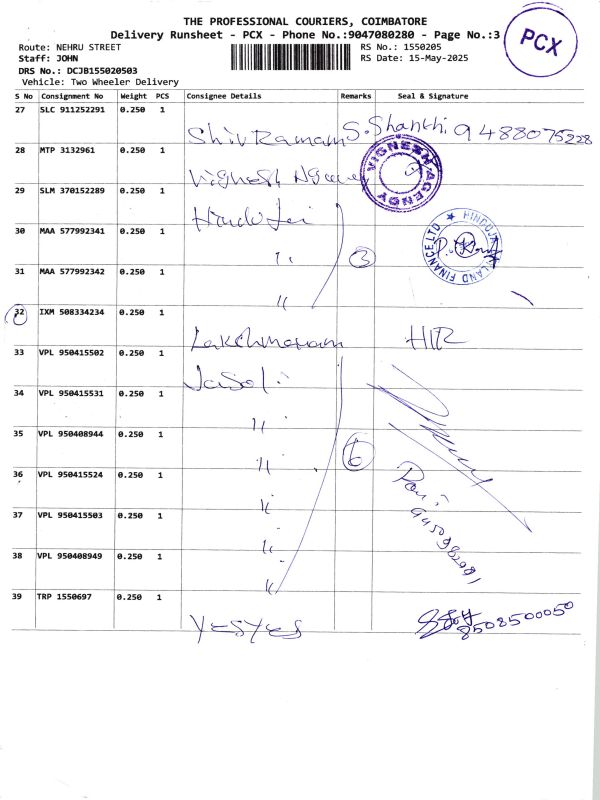 THE PROFESSIONAL COURIERS, COIMBATORE
Delivery Runsheet - PCX - Phone No.:9047080280 - Page No.:3
PCX
Route: NEHRU STREET
RS No.: 1550205
Staff: JOHN
RS Date: 15-May-2025
DRS No.: DCJB155020503
Vehicle: Two Wheeler Delivery
S No Consignment No Weight PCS Consignee Details Remarks Seal & Signature
27 SLC 911252291 0.250 1
ShivRamam S. Shanthi 9488075228
28 MTP 3132961 0.250 1
VIGNESH AGENCY
29 SLM 370152289 0.250 1
HINDUJA LEYLAND FINANCE LTD
30 MAA 577992341 0.250 1
" 3
31 MAA 577992342 0.250 1
"
32 IXM 508334234 0.250 1
33 VPL 950415502 0.250 1
34 VPL 950415531 0.250 1
"
35 VPL 950408944 0.250 1
" 6
36 VPL 950415524 0.250 1
"
37 VPL 950415503 0.250 1
"
38 VPL 950408949 0.250 1
"
39 TRP 1550697 0.250 1
YESYES 8508500050